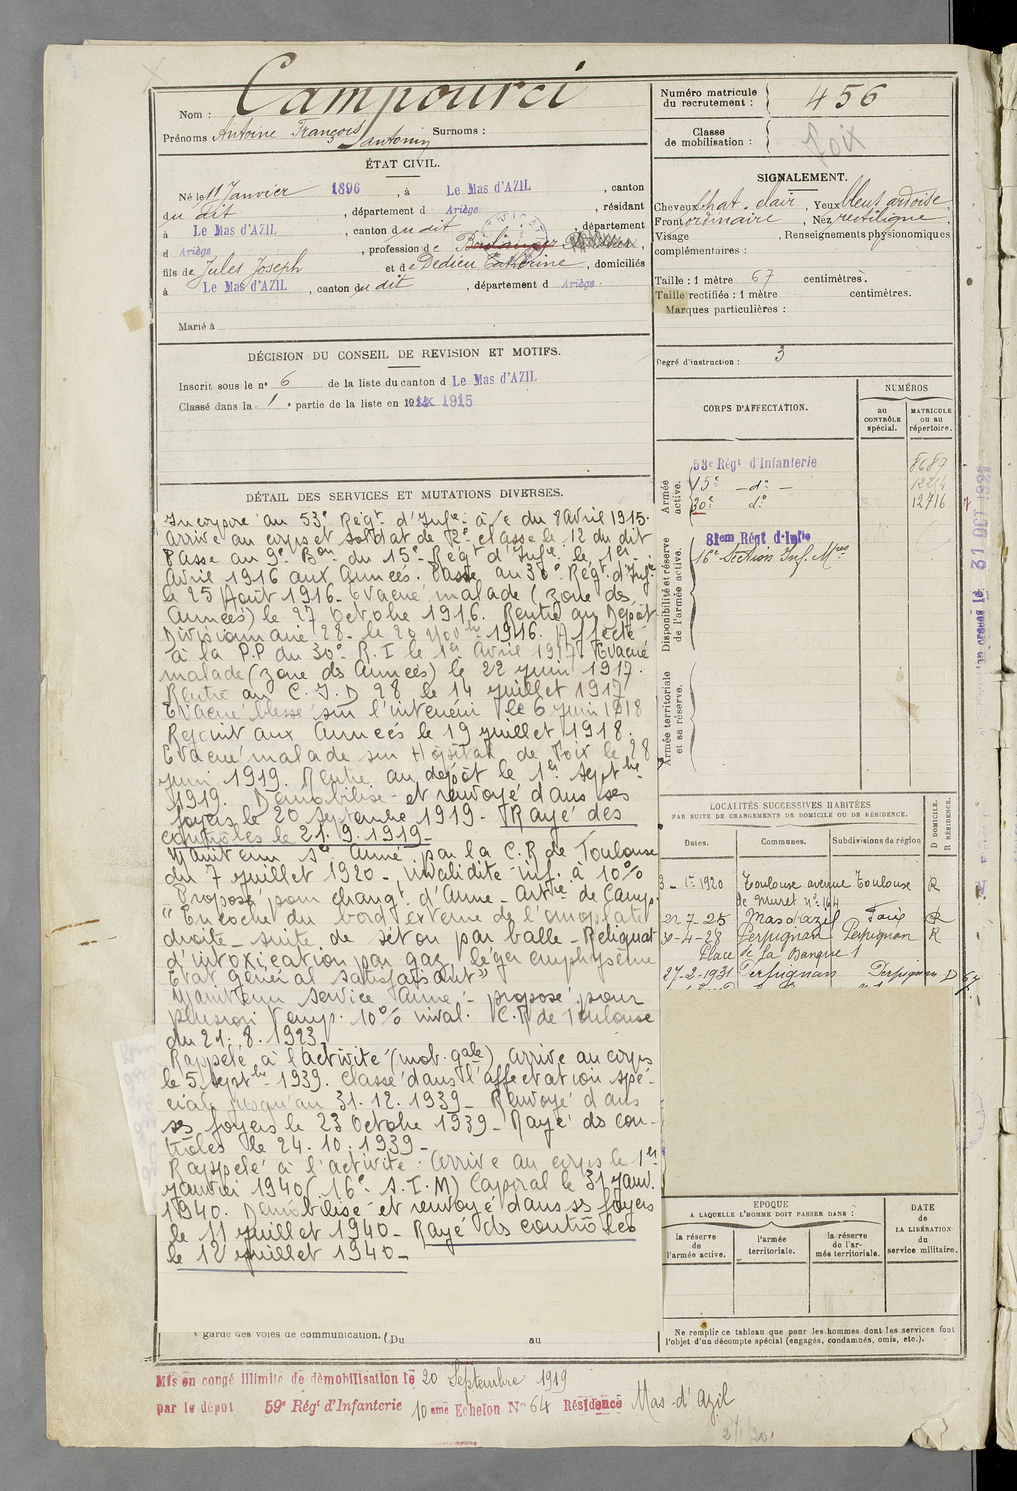 Nom : Campourci
Prénoms Antoine François Surnoms :
Santonin
ÉTAT CIVIL.
Né le 11 Janvier 1896, à Le Mas d'AZIL, canton
du dit, département d Ariège, résidant
à Le Mas d'AZIL, canton du dit, département
d Ariège, profession de Boulanger,
fils de Jules Joseph et de Dedieu Catherine, domiciliés
à Le Mas d'AZIL, canton du dit, département d Ariège.
Marié à
DÉCISION DU CONSEIL DE REVISION ET MOTIFS.
Inscrit sous le n° 6 de la liste du canton d Le Mas d'AZIL
Classé dans la 1e partie de la liste en 1915
DÉTAIL DES SERVICES ET MUTATIONS DIVERSES.
Incorporé au 53e Régt d'Infie à/c du 8 avril 1915.
Arrivé au corps et soldat de 2e classe le 12 du dit
Passé au 9e Bon du 15e Régt d'Infie le 1er
Avril 1916 aux Armées. Passé au 30e Régt d'Infie
le 25 Août 1916. Evacué malade (zone des
Armées) le 27 Octobre 1916. Rentré au Dépôt
Divisionnaire 28 le 20 Novbre 1916. Affecté
à la P.P du 30e R.I le 1er Avril 1917. Evacué
malade (zone des Armées) le 22 juin 1917.
Rentré au C.I.D 28 le 14 juillet 1917
Evacué blessé sur l'intérieur le 6 juin 1918
Rejoint aux Armées le 19 juillet 1918.
Evacué malade sur Hôpital de Foix le 28
juin 1919. Rentré au dépôt le 1er Septbre
1919. Démobilisé et renvoyé dans ses
foyers le 20 septembre 1919 - Rayé des
contrôles le 21.9.1919 -
Maintenu Sce Armé par la C.R de Toulouse
du 7 juillet 1920 - invalidité inf. à 10%
Proposé pour changt d'Arme - Artie de Camp.
"Encoche du bord externe de l'omoplate
droite - suite de séton par balle - Reliquat
d'intoxication par gaz léger emphysème
Etat général satisfaisant"
Maintenu service armé - proposé pour
pension temp. 10% inval. C.R de Toulouse
du 21.8.1923.
Rappelé à l'activité (mob. gale) arrivé au corps
le 5 septbre 1939. Classé dans l'affectation spé-
ciale jusqu'au 31.12.1939 - Renvoyé dans
ses foyers le 23 Octobre 1939 - Rayé ds con-
trôles le 24.10.1939 -
Rappelé à l'activité : Arrivé au corps le 1er
janvier 1940 (16e S.I.M) Caporal le 31 janv.
1940. Démobilisé et renvoyé dans ss foyers
le 11 juillet 1940 - Rayé ds contrôles
le 12 juillet 1940 -
garde des voies de communication. (Du au
Mis en congé illimité de démobilisation le 20 Septembre 1919
par le dépôt 59e Régt d'Infanterie 10eme Echelon N° 64 Résidence Mas-d'Azil
Numéro matricule
du recrutement : 456
Classe
de mobilisation :
Foix
SIGNALEMENT.
Cheveux chat. clair, Yeux bleus ardoise
Front ordinaire, Nez rectiligne,
Visage , Renseignements physionomiques
complémentaires :
Taille : 1 mètre 67 centimètres.
Taille rectifiée : 1 mètre centimètres.
Marques particulières :
Degré d'instruction : 3
CORPS D'AFFECTATION.
NUMÉROS
au CONTRÔLE spécial.
MATRICULE ou au répertoire.
Armée active.
53e Régt d'Infanterie 8687
15e - do -
30e do 12716
Disponibilité et réserve de l'armée active.
81em Régt d'Infie
16e Section Inf. Mres
Armée territoriale et sa réserve.
31 OCT 1927
LOCALITÉS SUCCESSIVES HABITÉES
PAR SUITE DE CHANGEMENTS DE DOMICILE OU DE RÉSIDENCE.
Dates. Communes. Subdivisions de région D DOMICILE. R RÉSIDENCE.
3-1-1920 Toulouse avenue Toulouse R
de Muret n° 164
22-7-25 Mas d'azil Foix R
30-4-28 Perpignan Perpignan R
Place de la Banque 1
27-2-1931 Perpignan Perpignan D
EPOQUE
A LAQUELLE L'HOMME DOIT PASSER DANS :
la réserve de l'armée active.
l'armée territoriale.
la réserve de l'armée territoriale.
DATE de LA LIBÉRATION du service militaire.
Ne remplir ce tableau que pour les hommes dont les services font
l'objet d'un décompte spécial (engagés, condamnés, omis, etc.).